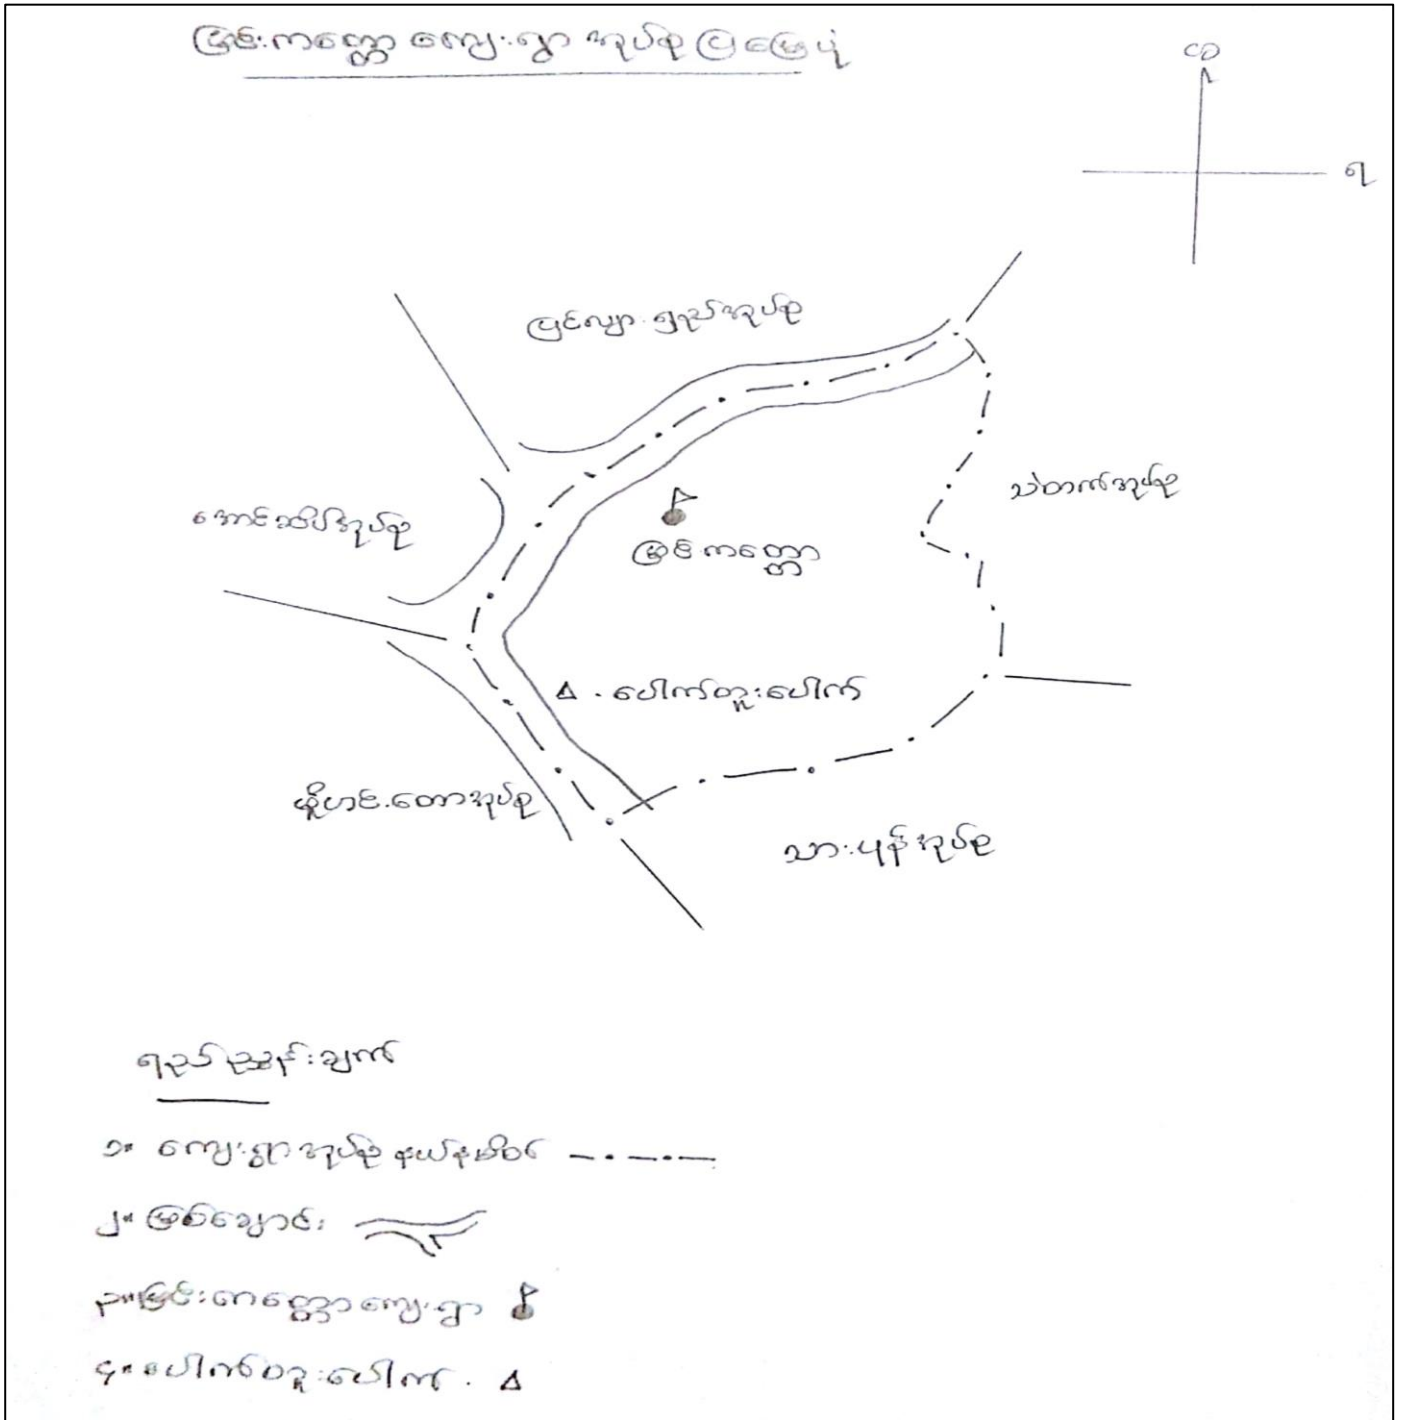 မြင်းကတ္တော ကျေးရွာ အုပ်စု ပြ မြေပုံ
တ
ရ
ပြင်လျာ.ရှည်အုပ်စု
သဲတက်အုပ်စု
အောင်သိပ်အုပ်စု
မြင်းကတ္တော
ပေါက်တူးပေါက်
သားပုန်အုပ်စု
ရည်ညွှန်းချက်
၁။ ကျေးရွာအုပ်စု နယ်နမိတ်
၂။ မြစ်ချောင်း
၃။ မြင်းကတ္တောကျေးရွာ
၄။ ပေါက်တူးပေါက်